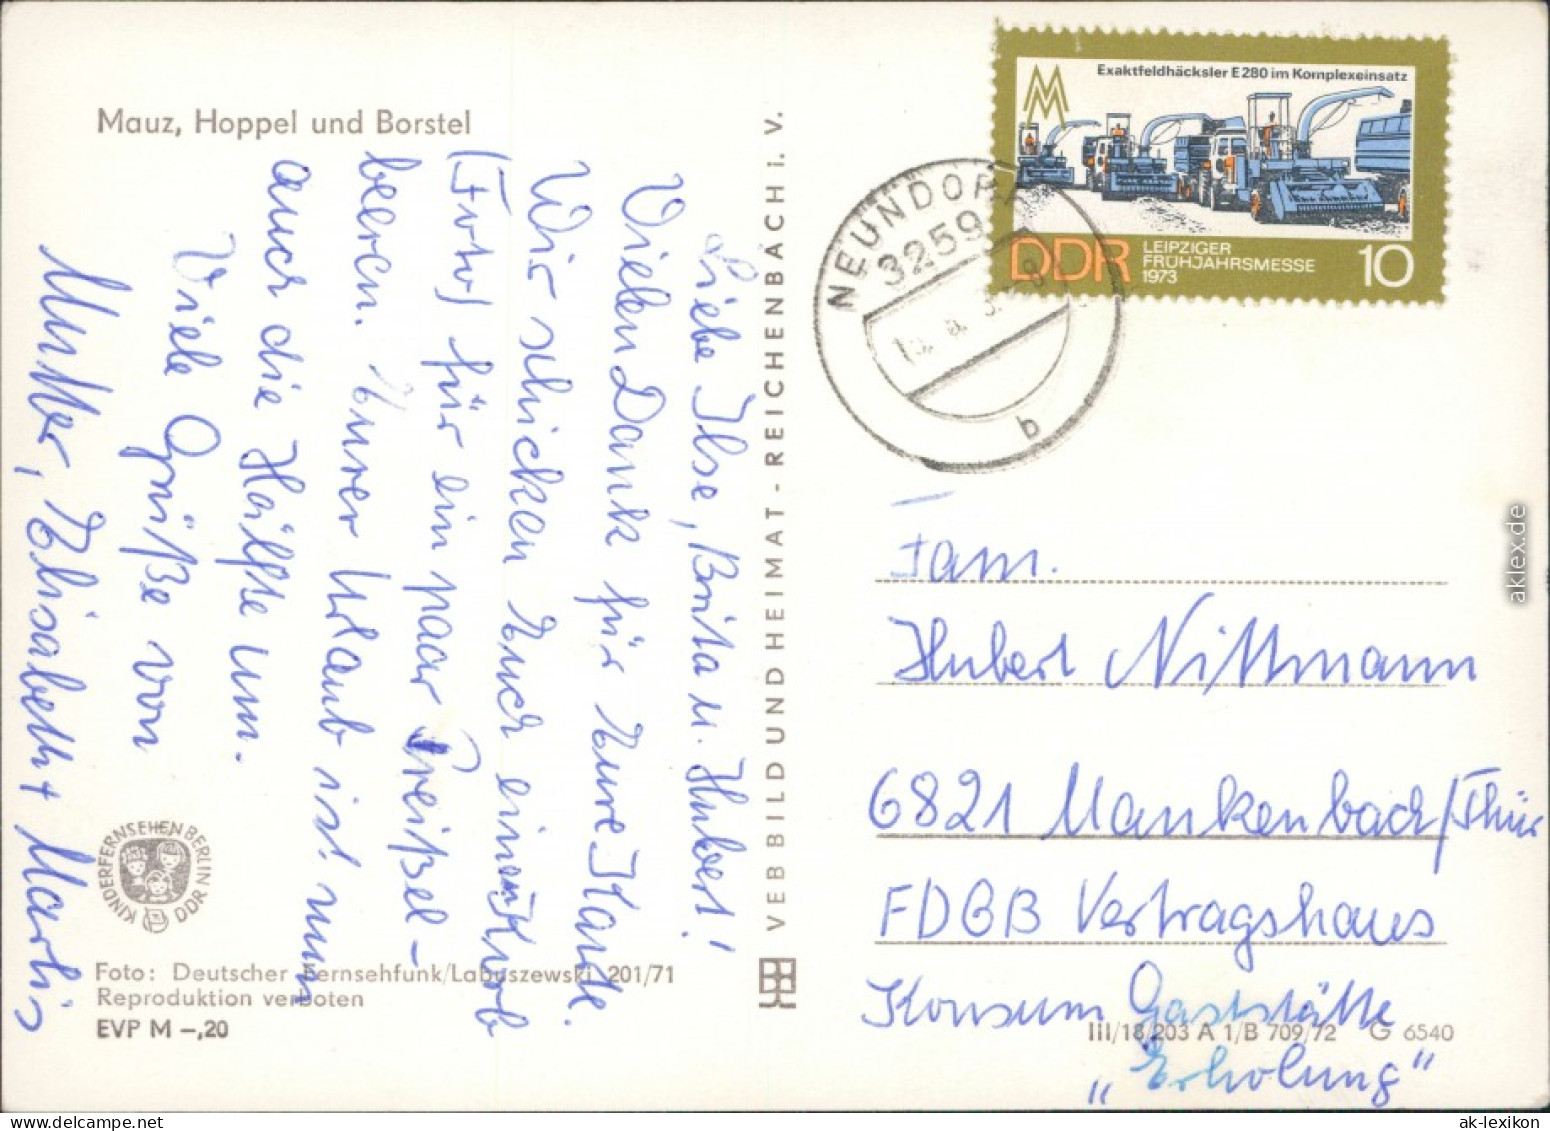 Mauz, Hoppel und Borstel
Liebe Ilse, Brita u. Hubert!
Vielen Dank für Eure Karte.
Wir schicken Euch einen Korb
(Foto) für ein paar Preißel-
beeren. Eurer Urlaub ist nun
auch die Hälfte um.
Viele Grüße von
Mutter, Elisabeth + Marlis
KINDERFERNSEHEN BERLIN DDR
Foto: Deutscher Fernsehfunk/Labuszewski 201/71
Reproduktion verboten
EVP M –,20
VEB BILD UND HEIMAT - REICHENBACH i. V.
Exaktfeldhäcksler E 280 im Komplexeinsatz
DDR
LEIPZIGER
FRÜHJAHRSMESSE
1973
10
NEUNDORF
3259
b
Fam.
Hubert Nittmann
6821 Mankenbach/Thür
FDGB Vertragshaus
Konsum Gaststätte
„Erholung“
III/18/203 A 1/B 709/72 G 6540
aklex.de
ak-lexikon